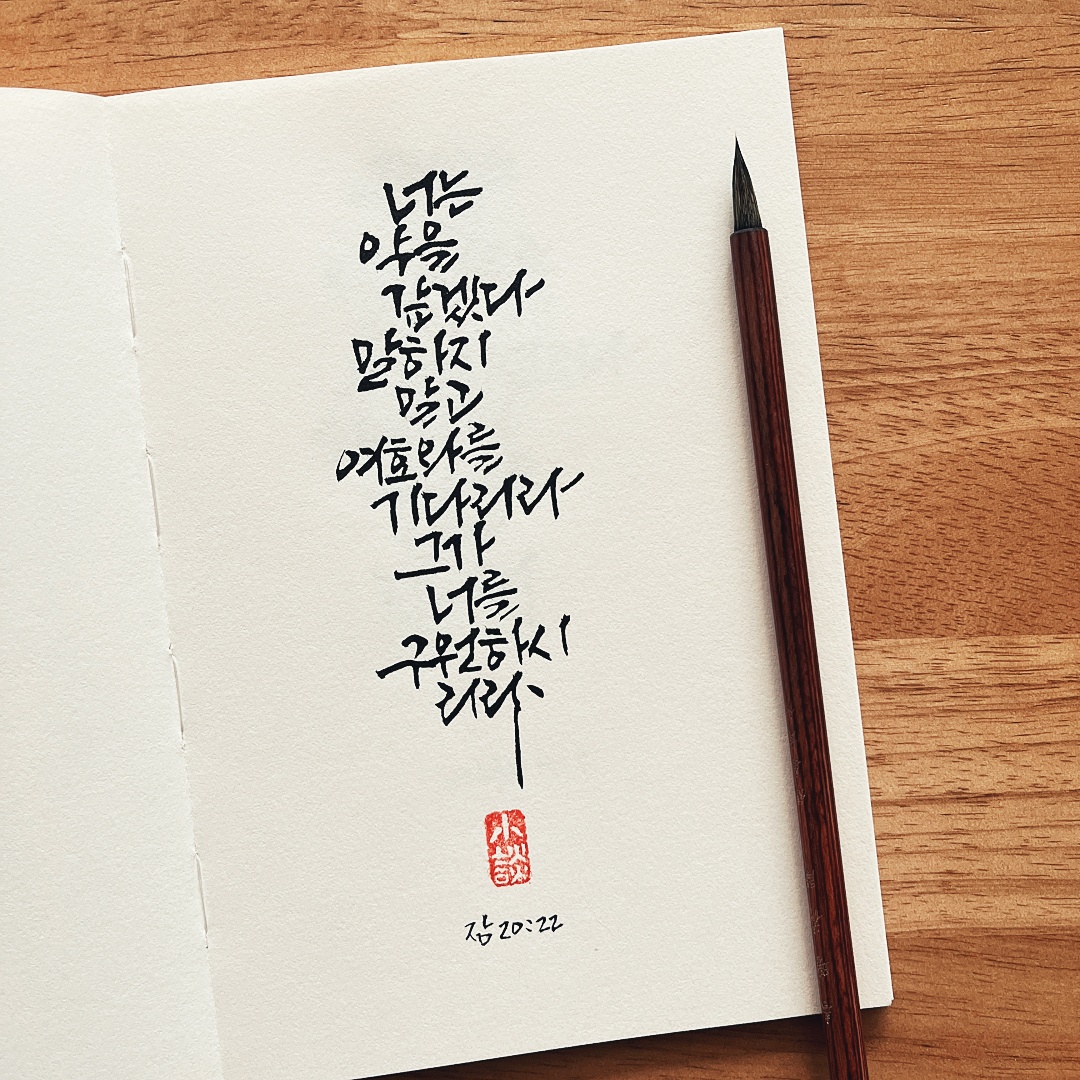 너는
악을
갚겠다
말하지
말고
여호와를
기다리라
그가
너를
구원하시
리라
小談
잠 20:22